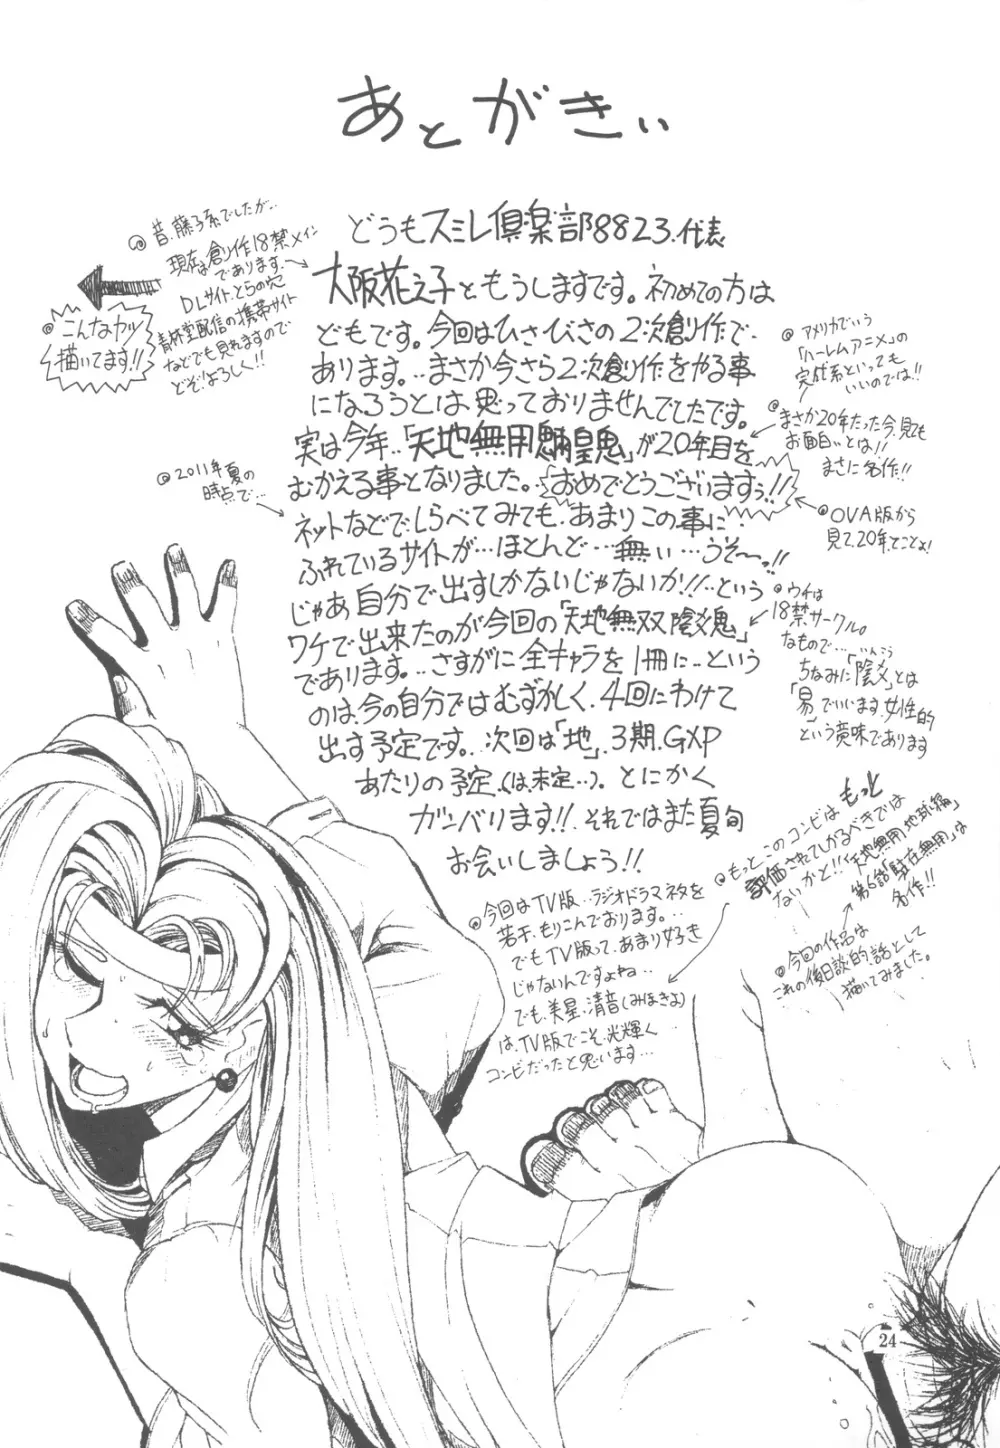 あとがきぃ
どうもスミレ倶楽部8823.代表
大阪花之子ともうしますです。初めての方は
どもです。今回はひさびさの2次創作で
あります。‥まさか今さら2次創作をやる事
になろうとは思っておりませんでしたです。
実は今年‥「天地無用魎皇鬼」が20年目を
むかえる事となりました。おめでとうございますぅ!!
ネットなどでしらべてみても、あまりこの事に
ふれているサイトが…ほとんど…無い…うそ〜っ!!
じゃあ自分で出すしかないじゃないか!!‥という
ワケで出来たのが今回の「天地無双陰〆鬼」
であります。‥さすがに全キャラを1冊に‥という
のは、今の自分ではむずかしく、4回にわけて
出す予定です。次回は「地」、3期、GXP
あたりの予定、(は、未定…)。とにかく
ガンバリます!!それではまた夏旬
お会いしましょう!!
◎昔、藤子系でしたが‥
現在は創作18禁メイン
であります。
DLサイト、とらの穴
青林堂配信の携帯サイト
などでも見れますので
どぞ!よろしく!!
◎こんなカンジ
描いてます!!
◎2011年夏の
時点で…
◎アメリカでいう
「ハーレムアニメ」の
完成系といっても
いいのでは!!
◎まさか20年たった今、見ても
お面白いとは!!
まさに名作!!
◎OVA版から
見て、20年、てことよ!
◎ウチは
18禁サークル。
なもので…
いんこう
ちなみに「陰〆」とは
「易」でいいます、女性的
という意味であります
◎今回はTV版‥ラジオドラマネタを
若干、もりこんでおります。‥
でもTV版って、あまり好き
じゃないんですよね‥
でも、美星、清音(みほきよ)
は、TV版でこそ、光輝く
コンビだったと思います…
◎もっとこのコンビは
もっと
評価されてしかるべきでは
ないかと!!「天地無用地球編」
第6話「駐在無用」は
名作!!
◎今回の作品は
これの後日談的話として
描いてみました。
24